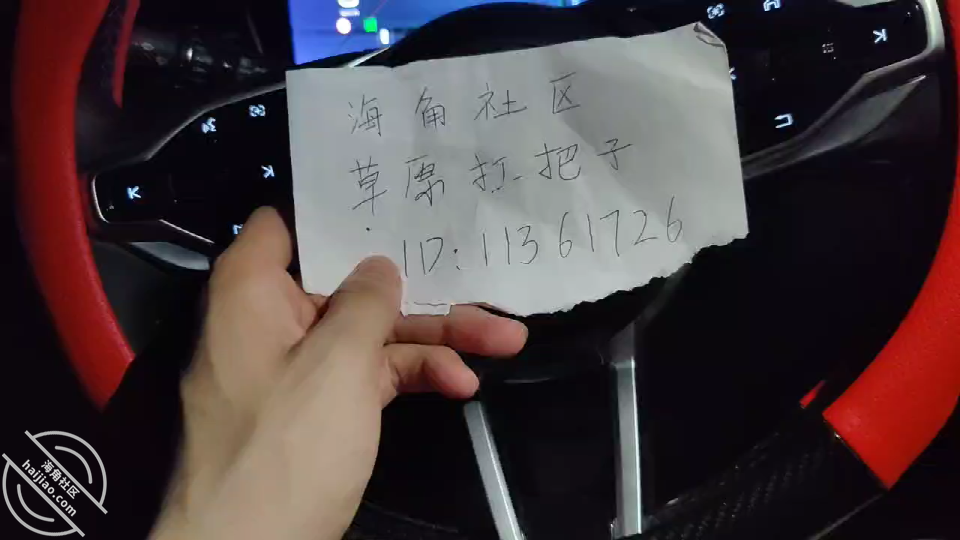 海角社区
草原打把子
ID:11361726
海角社区
haijiao.com